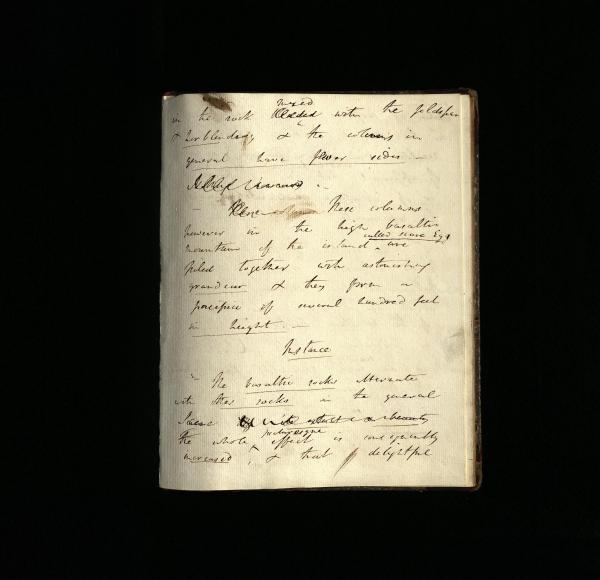 in the rock mixed with the feldspar
& hornblende, & the columns in
general have fewer sides –
– These columns
however in the high basaltic
mountain of the island called Scure Egg are
piled together with astonishing
grandeur & they form a
precipice of several hundred feet
in height. –
Instance
The basaltic rocks alternate
with other rocks in the general
the whole picturesque effect is consequently
increased, & that delightful